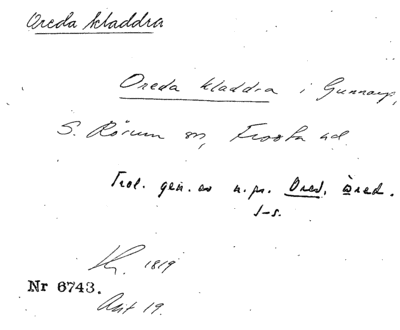 Oreda kladdra
Oreda kladdra i Gunnarp,
S. Rörum sn, Frosta hd.
Trol. gen. av n.pr. Ored, Öred.
J-s.
1819
Nr 6743.
Ant 19.